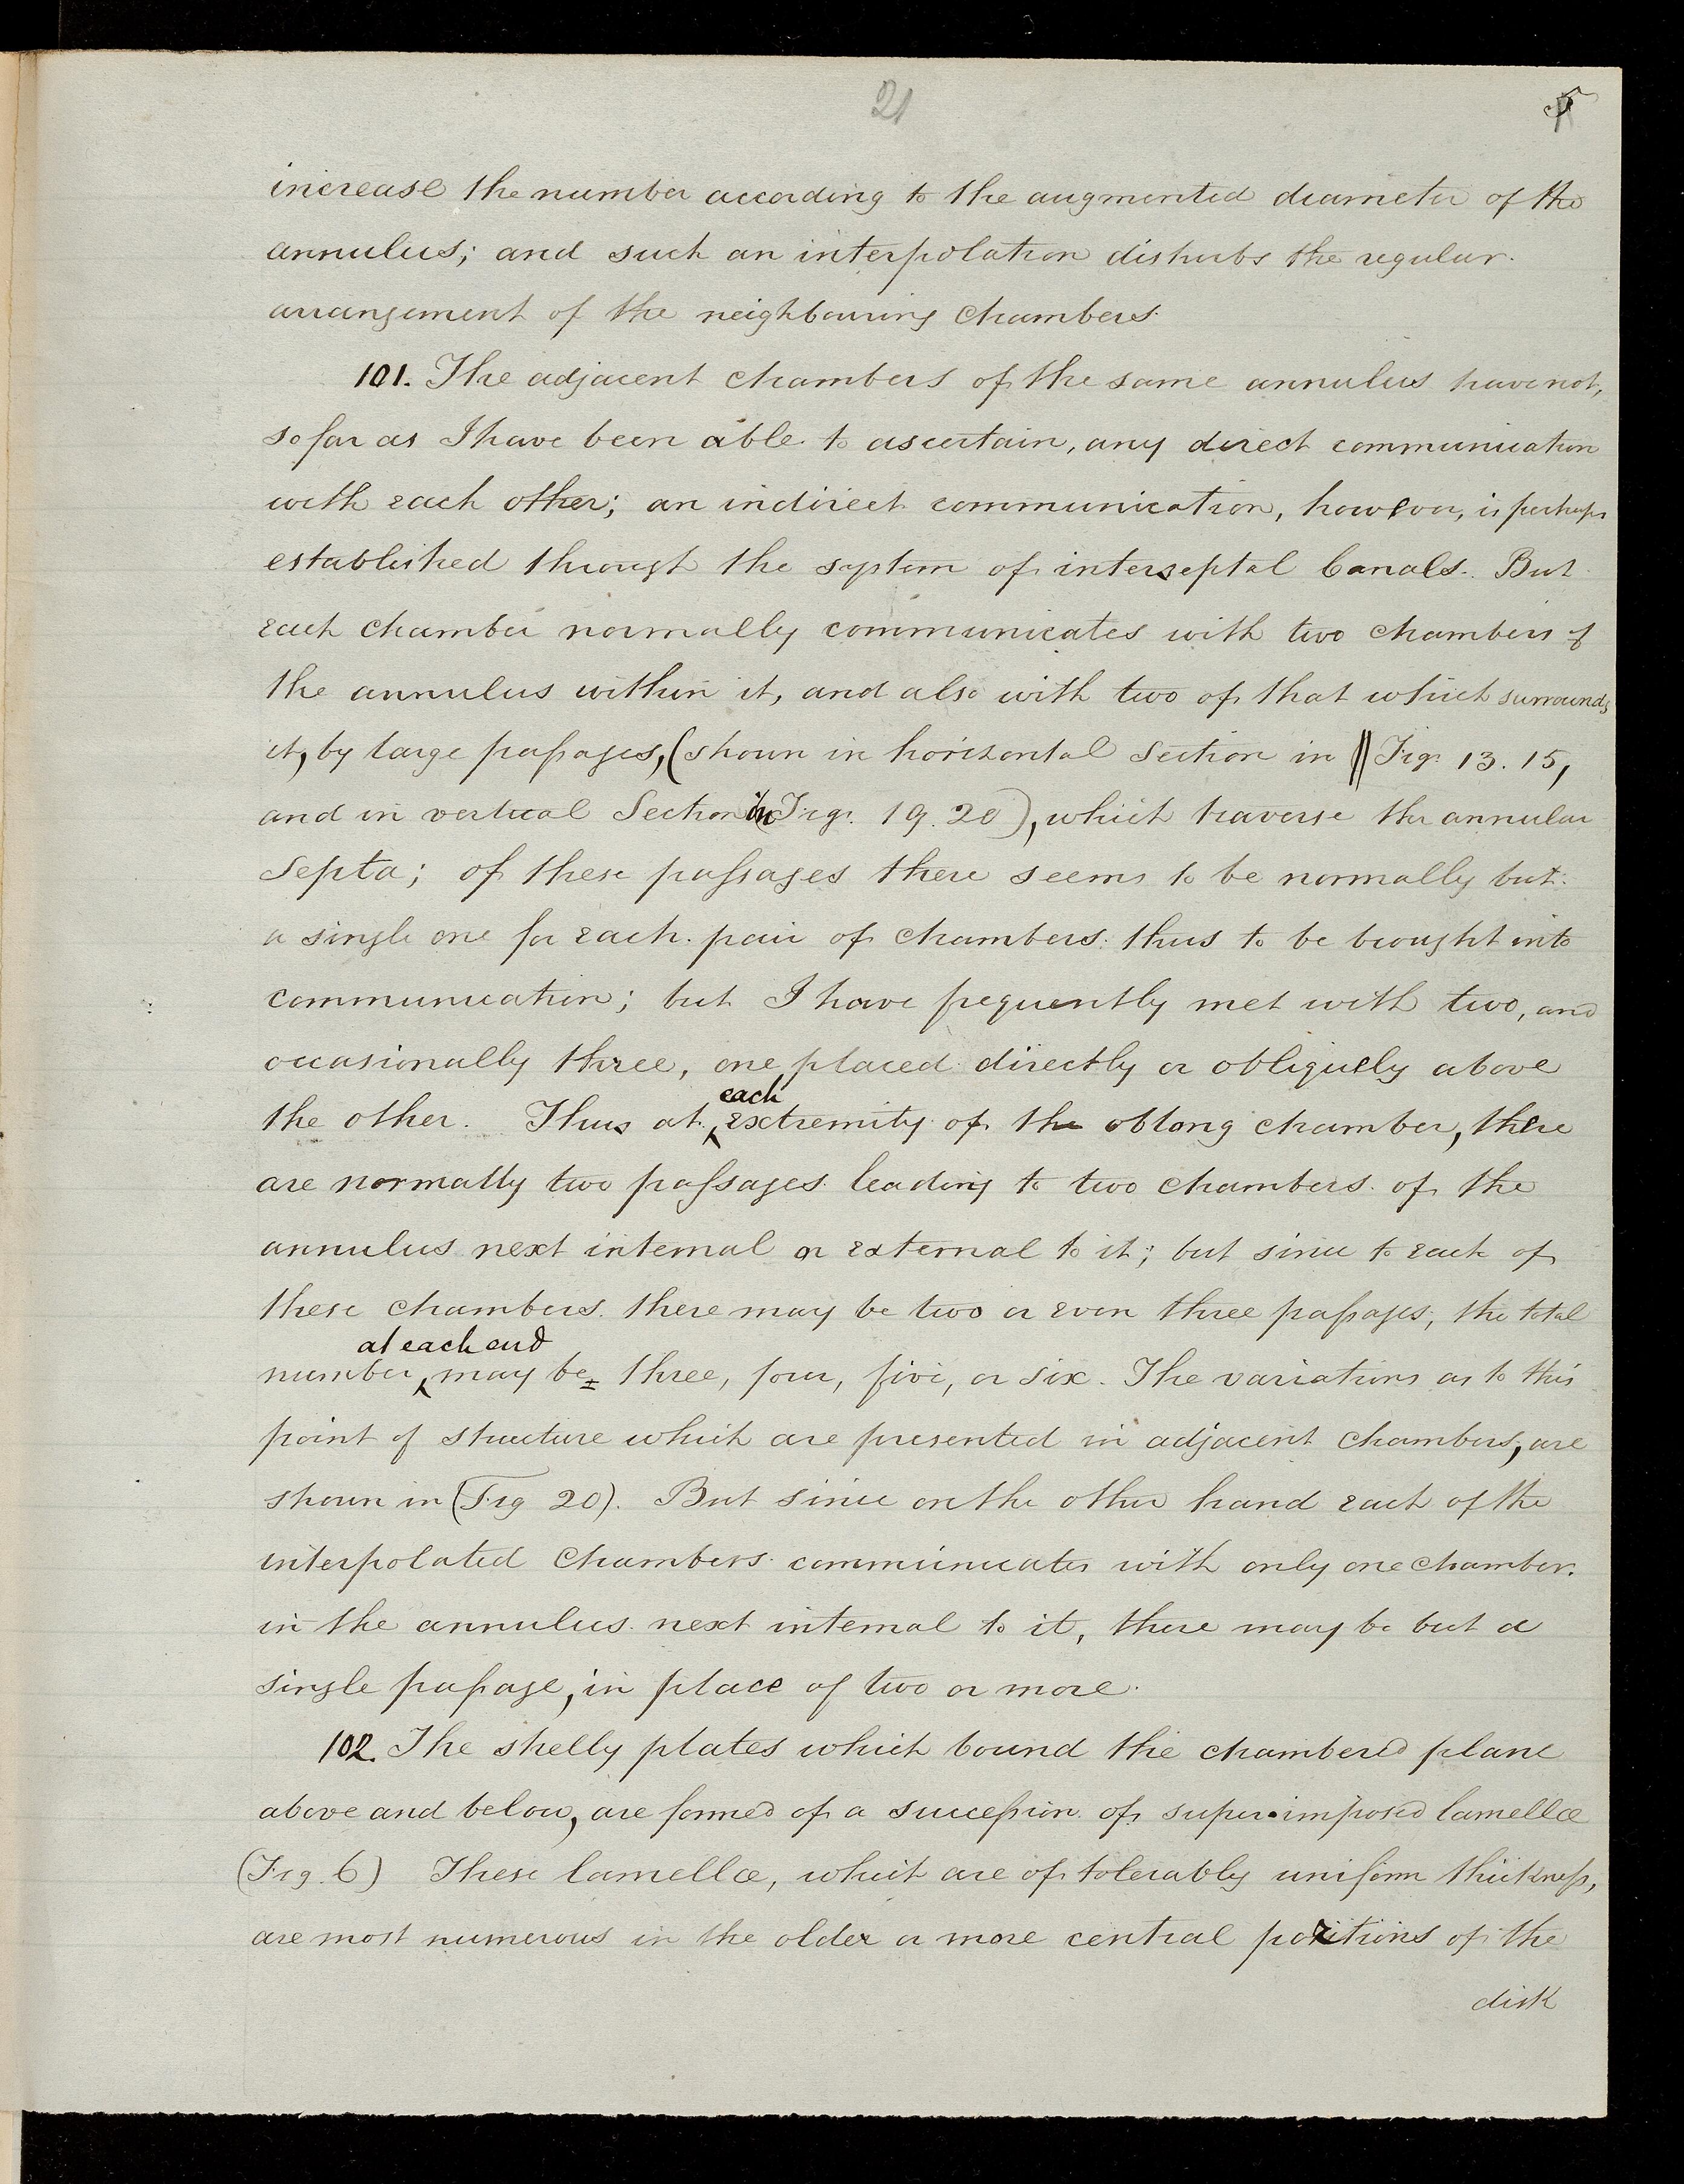 21
5
increase the number according to the augmented diameter of the
annulus; and such an interpolation disturbs the regular
arrangement of the neighbouring chambers.
101. The adjacent chambers of the same annulus have not,
so far as I have been able to ascertain, any direct communication
with each other; an indirect communication, however, is perhaps
established through the system of interseptal Canals. But
each chamber normally communicates with two chambers of
the annulus within it, and also with two of that which surrounds
it, by large passages, (shown in horizontal Section in Figs. 13. 15,
and in vertical Section in Figs. 19. 20), which traverse the annular
Septa; of these passages there seems to be normally but
a single one for each pair of chambers thus to be brought into
communication; but I have frequently met with two, and
occasionally three, one placed directly or obliquely above
each
the other. Thus at extremity of the oblong chamber, there
are normally two passages leading to two chambers of the
annulus next internal or external to it; but since to each of
these chambers there may be two or even three passages, the total
at each end
number may be three, four, five, or six. The variations as to this
point of structure which are presented in adjacent chambers, are
shown in (Fig 20). But since on the other hand each of the
interpolated chambers communicates with only one chamber
in the annulus next internal to it, there may be but a
single passage, in place of two or more.
102. The shelly plates which bound the chambered plane
above and below, are formed of a succession of super-imposed lamellæ
(Fig. 6) These lamellæ, which are of tolerably uniform thickness,
are most numerous in the older or more central portions of the
disk